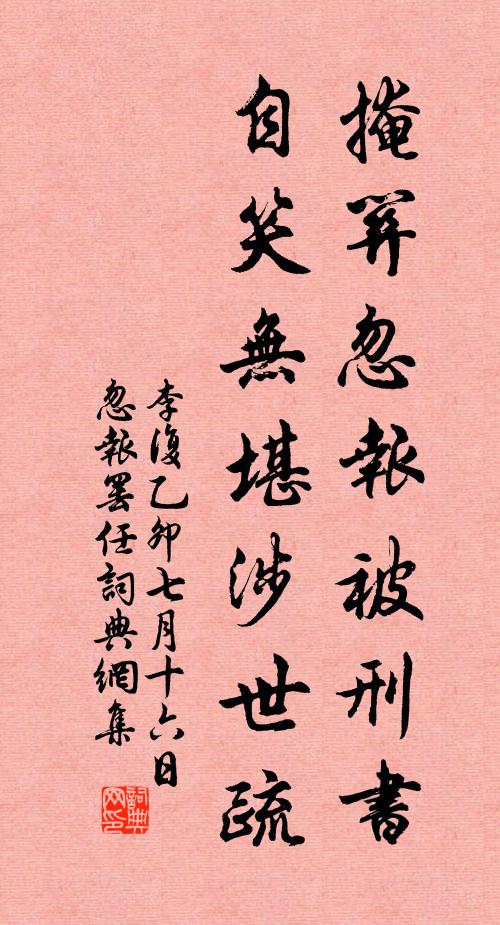 掩關忽報被刑書
自笑無堪涉世疏
李復乙卯七月十六日
忽報罷任詞典網集
詞典
网印